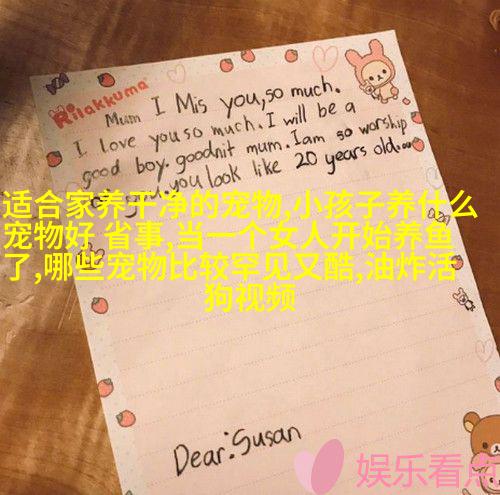 Rilakkuma
Mum I Mis you,so much.
I love you so much. I will be a
good boy. goodnit mum. I am so worship
you. you look like 20 years old.
适合家养干净的宠物,小孩子养什么
宠物好 省事,当一个女人开始养鱼
了,哪些宠物比较罕见又酷,油炸活
狗视频
Dear:Susan
娱乐看点